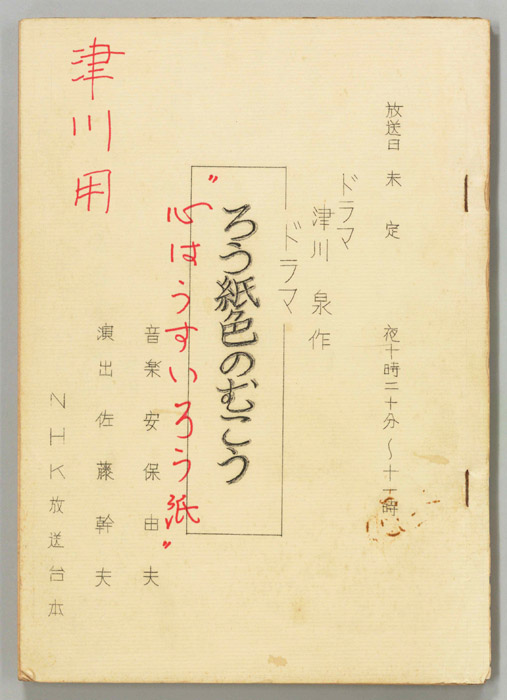 放送日 未定 夜十時二十分〜十一時
ドラマ
津川 泉 作
ドラマ
ろう紙色のむこう
"心はうすいろう紙"
音楽 安保由夫
演出 佐藤幹夫
NHK放送台本
津川用